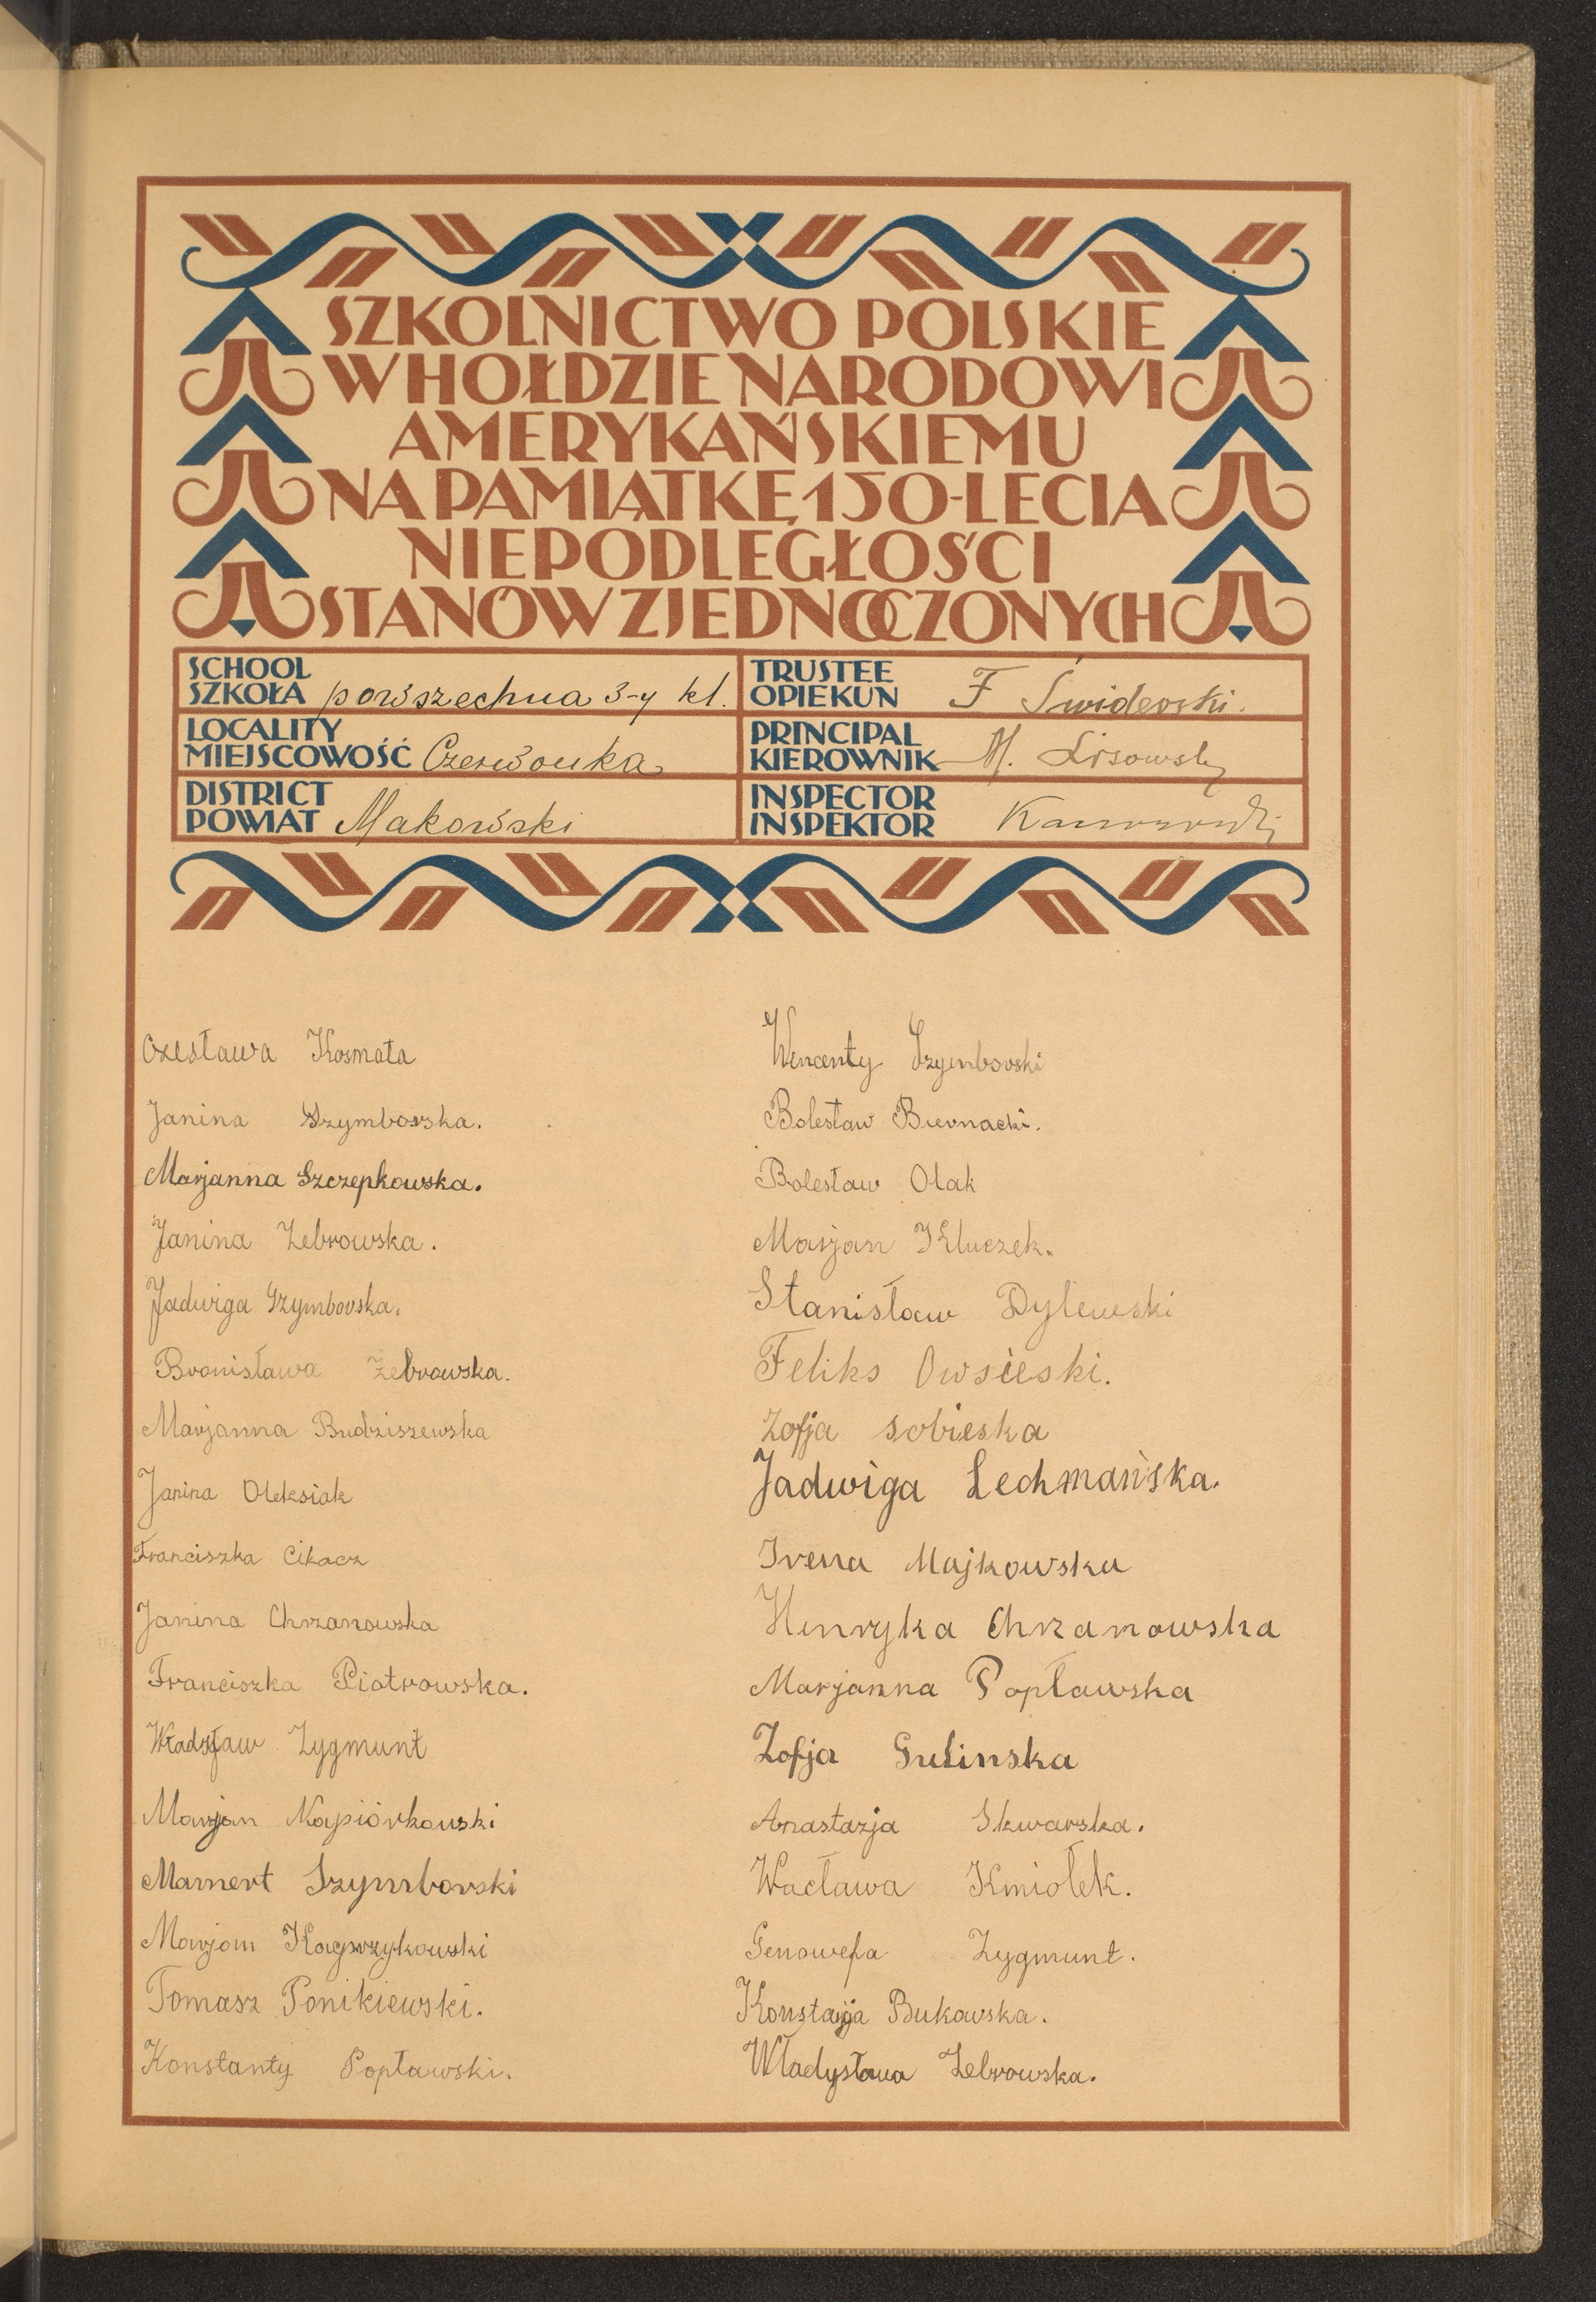 SZKOLNICTWO POLSKIE
W HOŁDZIE NARODOWI
AMERYKAŃSKIEMU
NA PAMIĄTKĘ 150-LECIA
NIEPODLEGŁOŚCI
STANÓW ZJEDNOCZONYCH
SCHOOL
SZKOŁA powszechna 3-y kl.
LOCALITY
MIEJSCOWOŚĆ Czerwonka
DISTRICT
POWIAT Makowski
TRUSTEE
OPIEKUN F Świderski.
PRINCIPAL
KIEROWNIK M. Lisowski
INSPECTOR
INSPEKTOR
Czesława Kosmata
Janina Szymborska.
Marjanna Szczepkowska.
Janina Żebrowska.
Jadwiga Szymborska.
Bronisława Żebrowska.
Marjanna Budziszewska
Janina Oleksiak
Franciszka Cikacz
Janina Chrzanowska
Franciszka Piotrowska.
Władysław Zygmunt
Marjan Napiórkowski
Mamert Szymborski
Marjan Kacprzykowski
Tomasz Ponikiewski.
Konstanty Popławski.
Wincenty Szymborski
Bolesław Biernacki.
Bolesław Olak
Marjan Kluczek.
Stanisław Dylewski
Feliks Owsieski.
Zofja sobieska
Jadwiga Lechmańska.
Irena Majkowska
Henryka Chrzanowska
Marjanna Popławska
Zofja Gulinska
Anastazja Skwarska.
Wacława Kmiołek.
Genowefa Zygmunt.
Konstancja Bukowska.
Władysława Żebrowska.